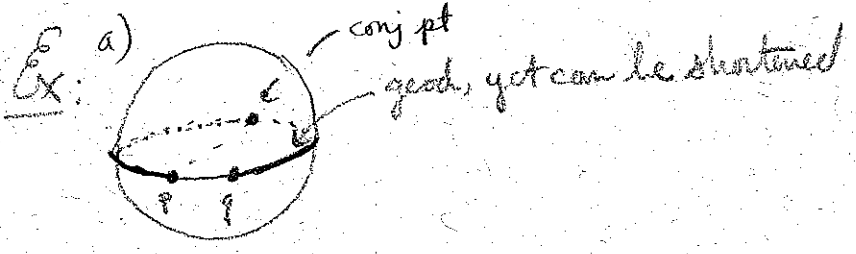 Ex: a)
conj pt
geod, yet can be shortened
p q